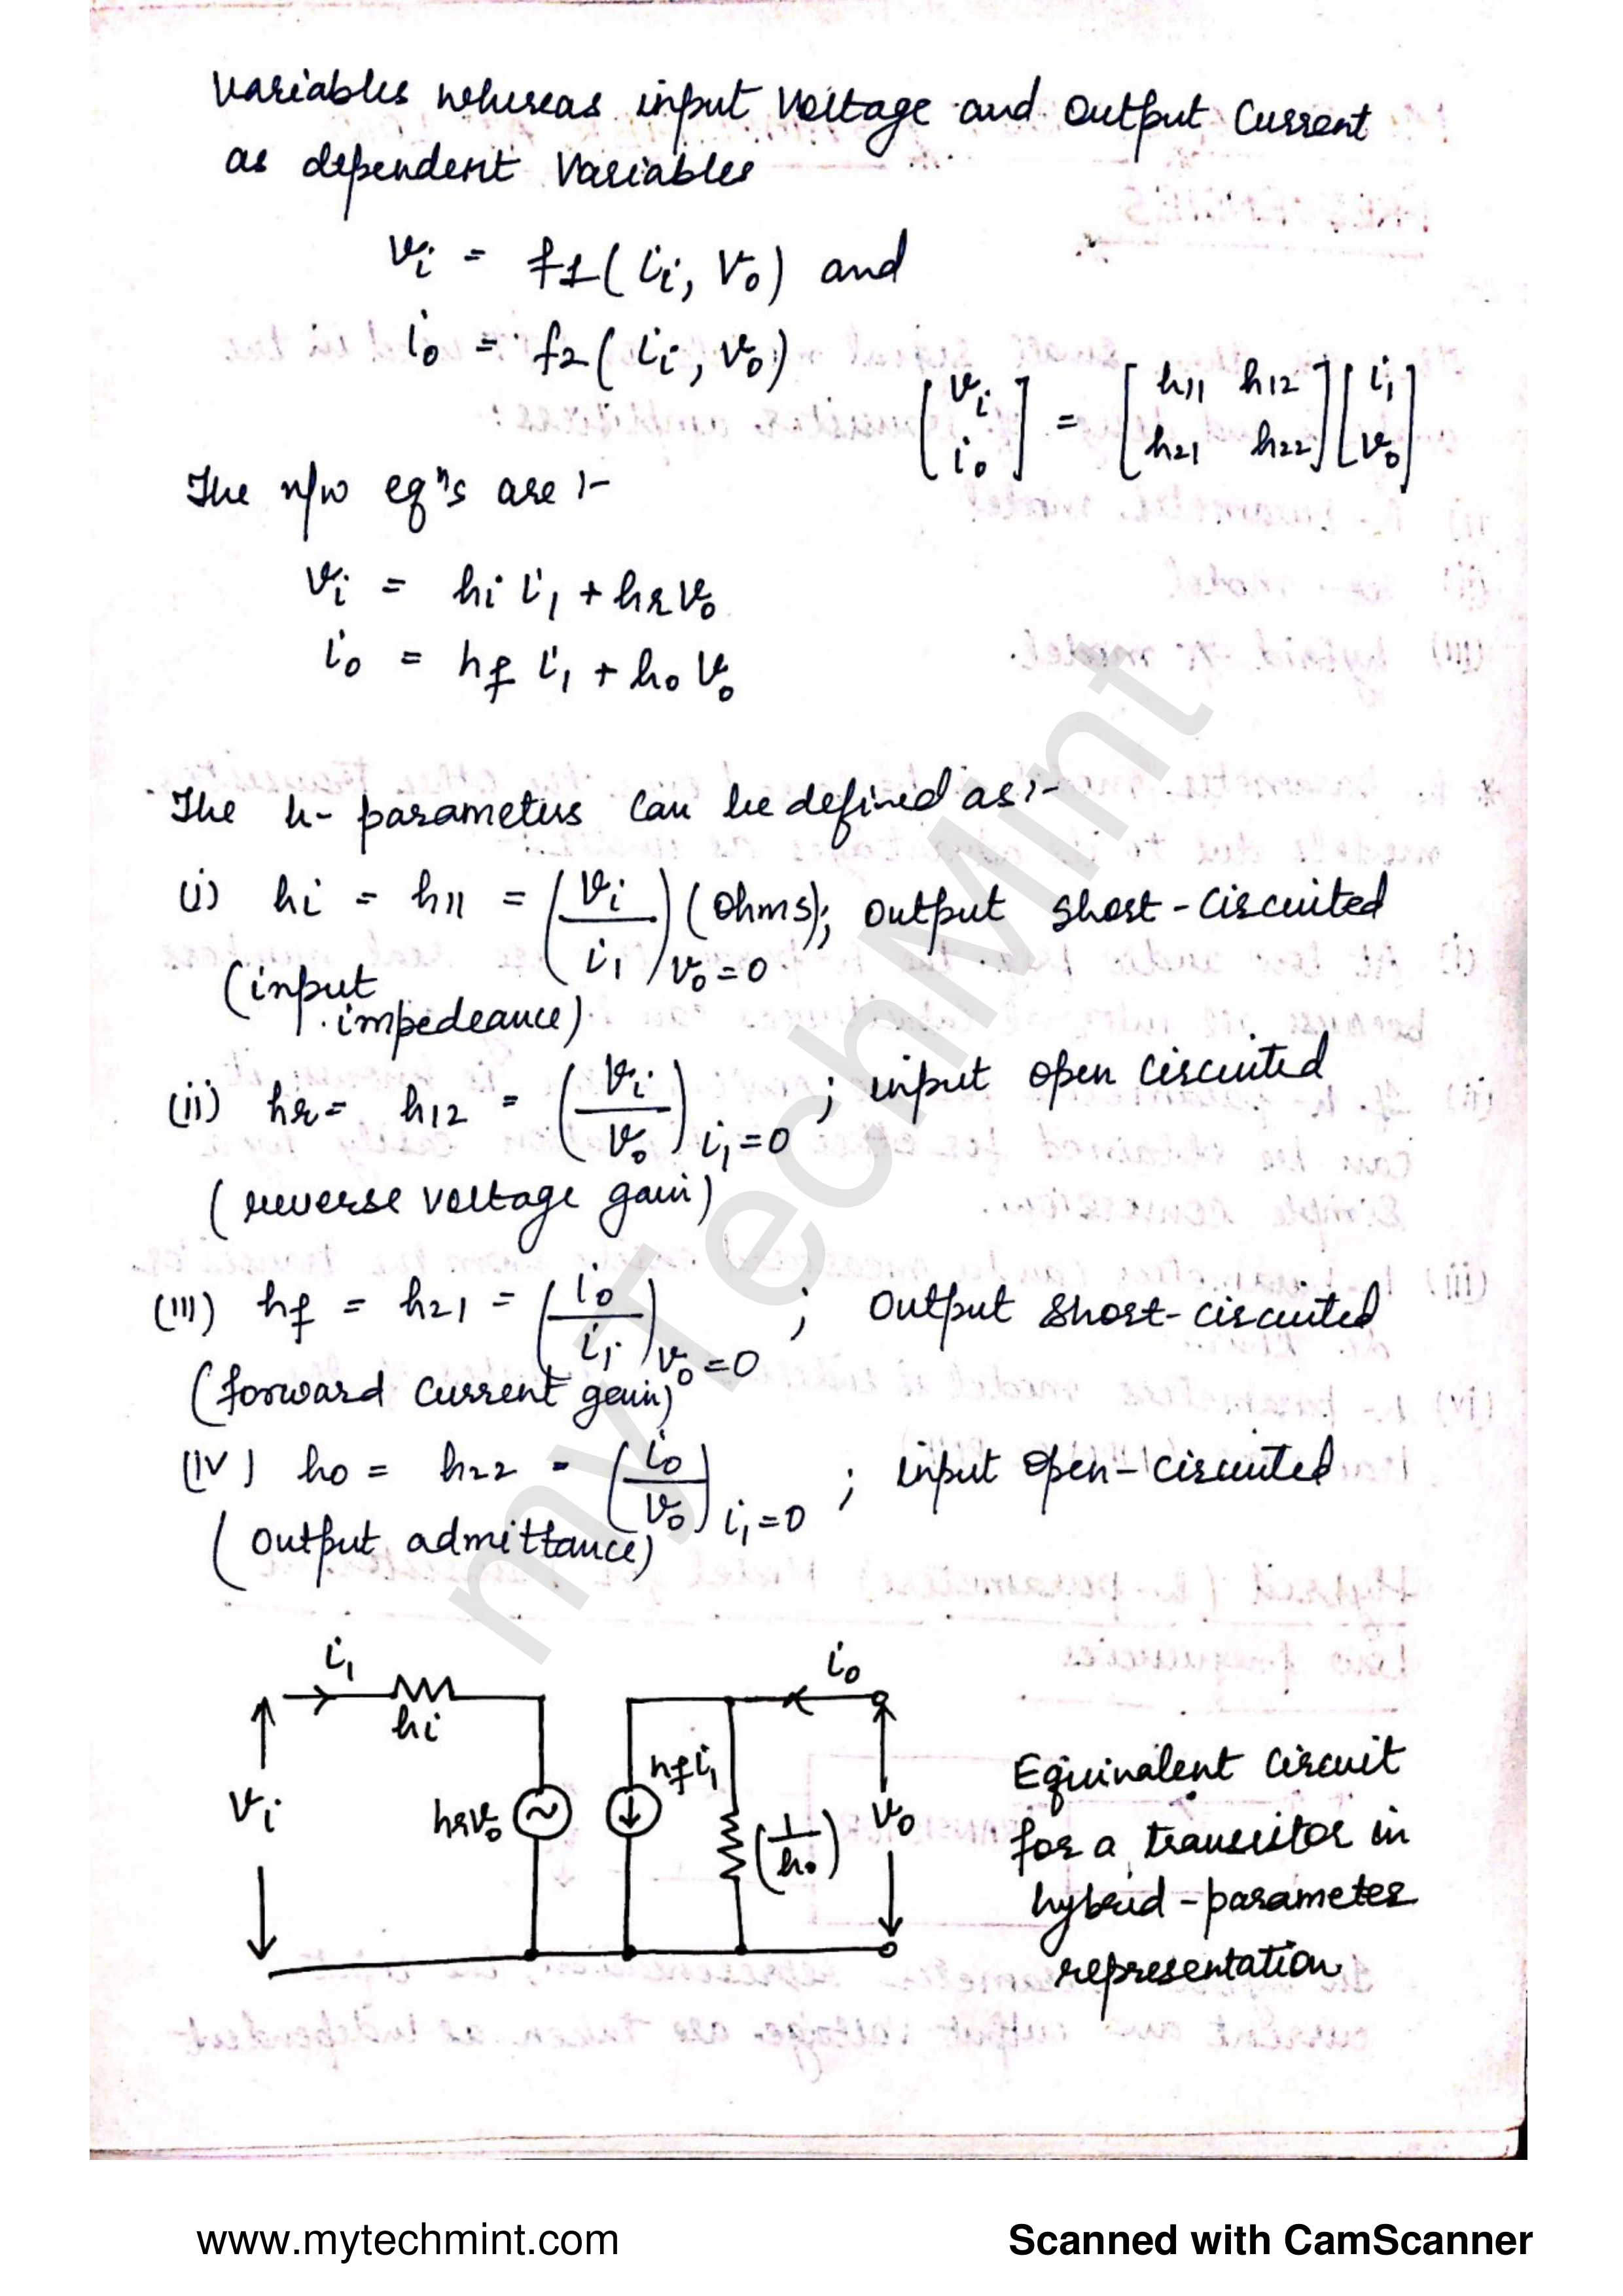 Variables whereas input voltage and output current
as dependent variables
vi = f1(ii, vo) and
io = f2(ii, vo)
[vi io] = [h11 h12 h21 h22][i1 vo]
The n/w eqns are :-
vi = hi i1 + hr vo
io = hf i1 + ho vo
The h- parameters can be defined as:-
(i) hi = h11 = (vi/i1) vo=0 (ohms); output short-circuited
(input
impedeance)
(ii) hr = h12 = (vi/vo) i1=0 ; input open circuited
(reverse voltage gain)
(iii) hf = h21 = (io/i1) vo=0 ; output short-circuited
(forward current gain)
(iv) ho = h22 = (io/vo) i1=0 ; input open-circuited
(output admittance)
i1
io
hi
hf i1
vi
hr vo
(1/ho)
vo
Equivalent circuit
for a transistor in
hybrid-parameter
representation
myTechMint
www.mytechmint.com
Scanned with CamScanner